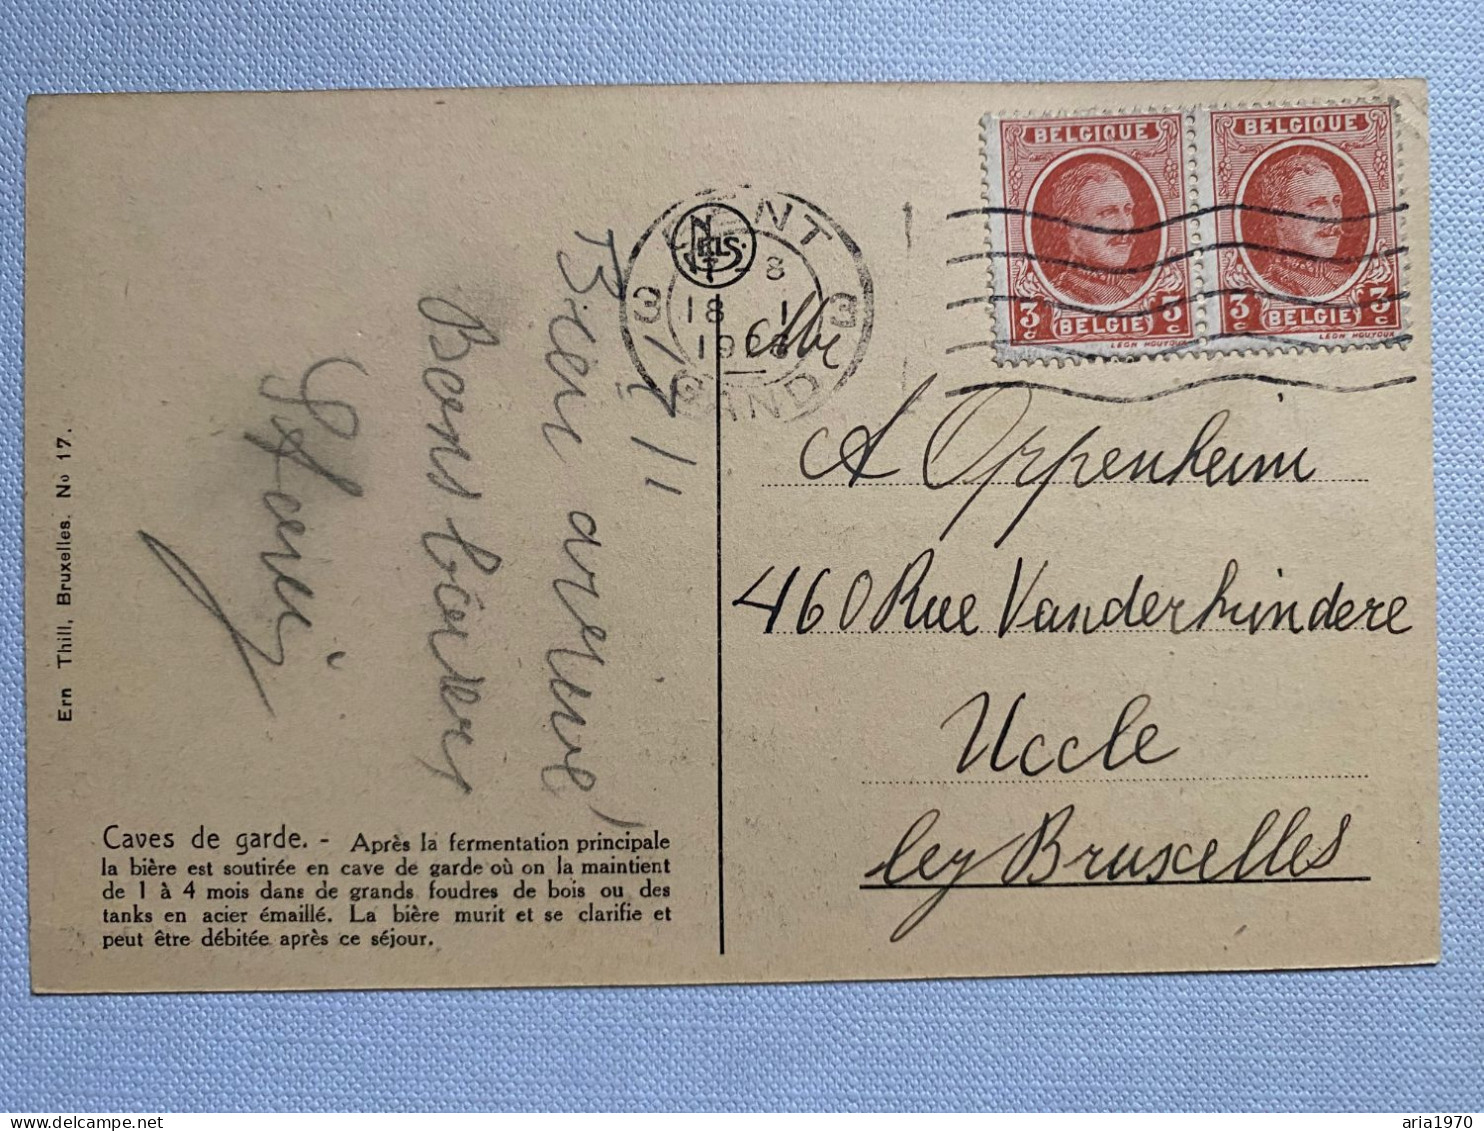 BELGIQUE
3c (BELGIE) 3c
LÉON HOUYOUX
BELGIQUE
3c (BELGIE) 3c
LÉON HOUYOUX
GENT
NELS
17 - 8
3 18 1 3
GAND
17/1
Bien arrivé!
Bons baisers
A Oppenheim
460 Rue Vanderkindere
Uccle
lez Bruxelles
Ern Thill, Bruxelles. No 17.
Caves de garde. - Après la fermentation principale
la bière est soutirée en cave de garde où on la maintient
de 1 à 4 mois dans de grands foudres de bois ou des
tanks en acier émaillé. La bière murit et se clarifie et
peut être débitée après ce séjour.
aria1970